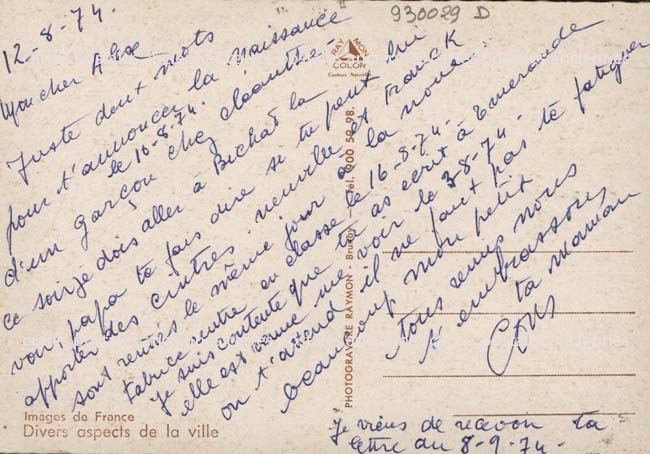 930029 D
12-8-74.
Mon cher Alex
Juste deux mots
pour t'annoncer la naissance
le 10-8-74.
d'un garçon chez
ce soir je dois aller à Bichat la
voir, papa te fais dire si tu peux lui
apporter des cintres. neuville et Franck
sont rentrés le même jour
Fabrice rentre en classe le 16-8-74.
je suis contente que tu as ecrit à Emeraude
elle est venue me voir le 3-8-74.
on t'attend il ne faut pas te fatiguer
beaucoup mon petit
tous venus nous
t'embrassons
ta maman
Je viens de recevoir ta
lettre du 8-9-74-
RAYMON
COLOR
Couleurs Naturelles
PHOTOGRAVURE RAYMON - Brunoy - Tél. 900 59-98.
Images de France
Divers aspects de la ville